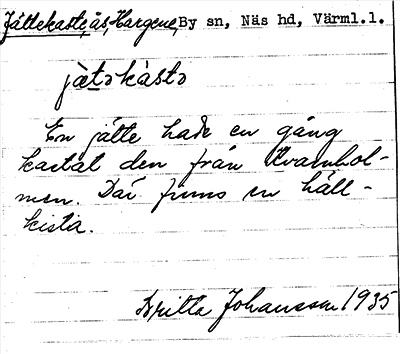 Jättekaste, ås, Hargene, By sn, Näs hd, Värml.l.
jætəkàstə
En jätte hade en gång
kastat den från Kvarnhol-
men. Där finns en häll-
kista.
Britta Johansson 1935